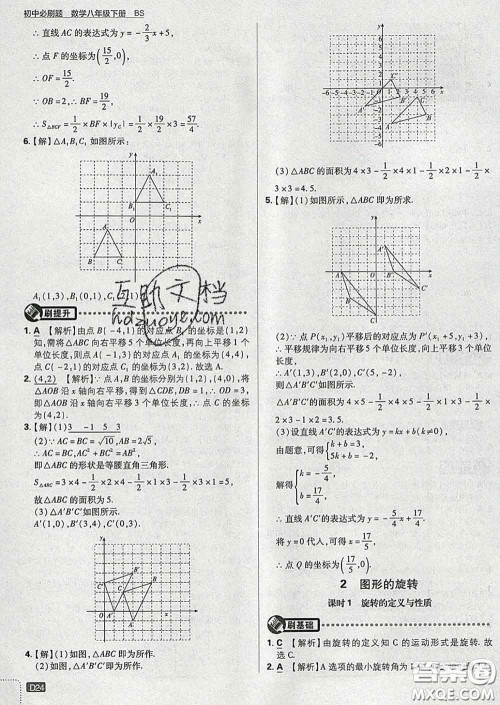 初中必刷题 数学八年级下册 BS
∴直线AC的表达式为y=-2/3x+5,
∴点F的坐标为(15/2,0),
∴OF=15/2.
∵OB=2,∴BF=19/2,
∴S△BCF=1/2×BF×|yC|=1/2×19/2×3=57/4.
6.【解】△A1B1C1如图所示:
A1(1,3),B1(0,1),C1(2,1)
刷提升
1. A 【解析】由点B(-4,1)的对应点B1的坐标是(1,2)
知,需将△ABC向右平移5个单位长度,再向上平移1个
单位长度,则点A(-1,3)的对应点A1的坐标为(4,4).
故选A.
2. (4,2) 【解析】∵点A,B的坐标分别为(1,2),(4,0),将
△AOB沿x轴向右平移,得到△CDE,DB=1,∴OD=3,
即△AOB沿x轴向右平移了3个单位长度,∴点C的坐
标为(4,2).
4.【解】(1)3 -1 5 3
(2)∵AC=BC=√10,AB=2√5,
∴AC=BC,AC²+BC²=AB²,
即△ABC的形状是等腰直角三角形.
S△ABC=3×4-1/2×2×4-1/2×3×1-1/2×3×1=5,
故△ABC的面积为5.
(3)如图,△A′B′C′为所作.
A′(1,0),B′(3,4),C′(0,3).
4.【解】(1)如图,△ABC即为所作.
(2)如图,△A′B′C′即为所作.
D24
(3)△ABC的面积为4×3-1/2×4×1-1/2×2×1-1/2
×3×3=4.5.
5.【解】(1)如图所示,△ABC即为所求.
(2)∵点P(x1,y1)平移后的对应点为P′(x1+5,y1+3),
∴平移规律为向右平移5个单位长度,向上平移3个单位
长度,
∴A′(1,3),B′(2,0),C′(5,-2).
△A′B′C′如图所示.
(3)设直线A′C′的表达式为y=kx+b(k≠0),
由题意,可得{k+b=3,
5k+b=-2,
解得{k=-5/4,
b=17/4,
∴直线A′C′的表达式为y=-5/4x+17/4.
将y=0代入,可得x=17/5,
∴点Q的坐标为(17/5,0).
2 图形的旋转
课时1 旋转的定义与性质
刷基础
1. C 【解析】由旋转的定义知C的运动形式是旋转.故
选C.
2. A 【解析】A选项的最小旋转角为
互助文档
hdzuoye.com
答案圈
MXQE.COM